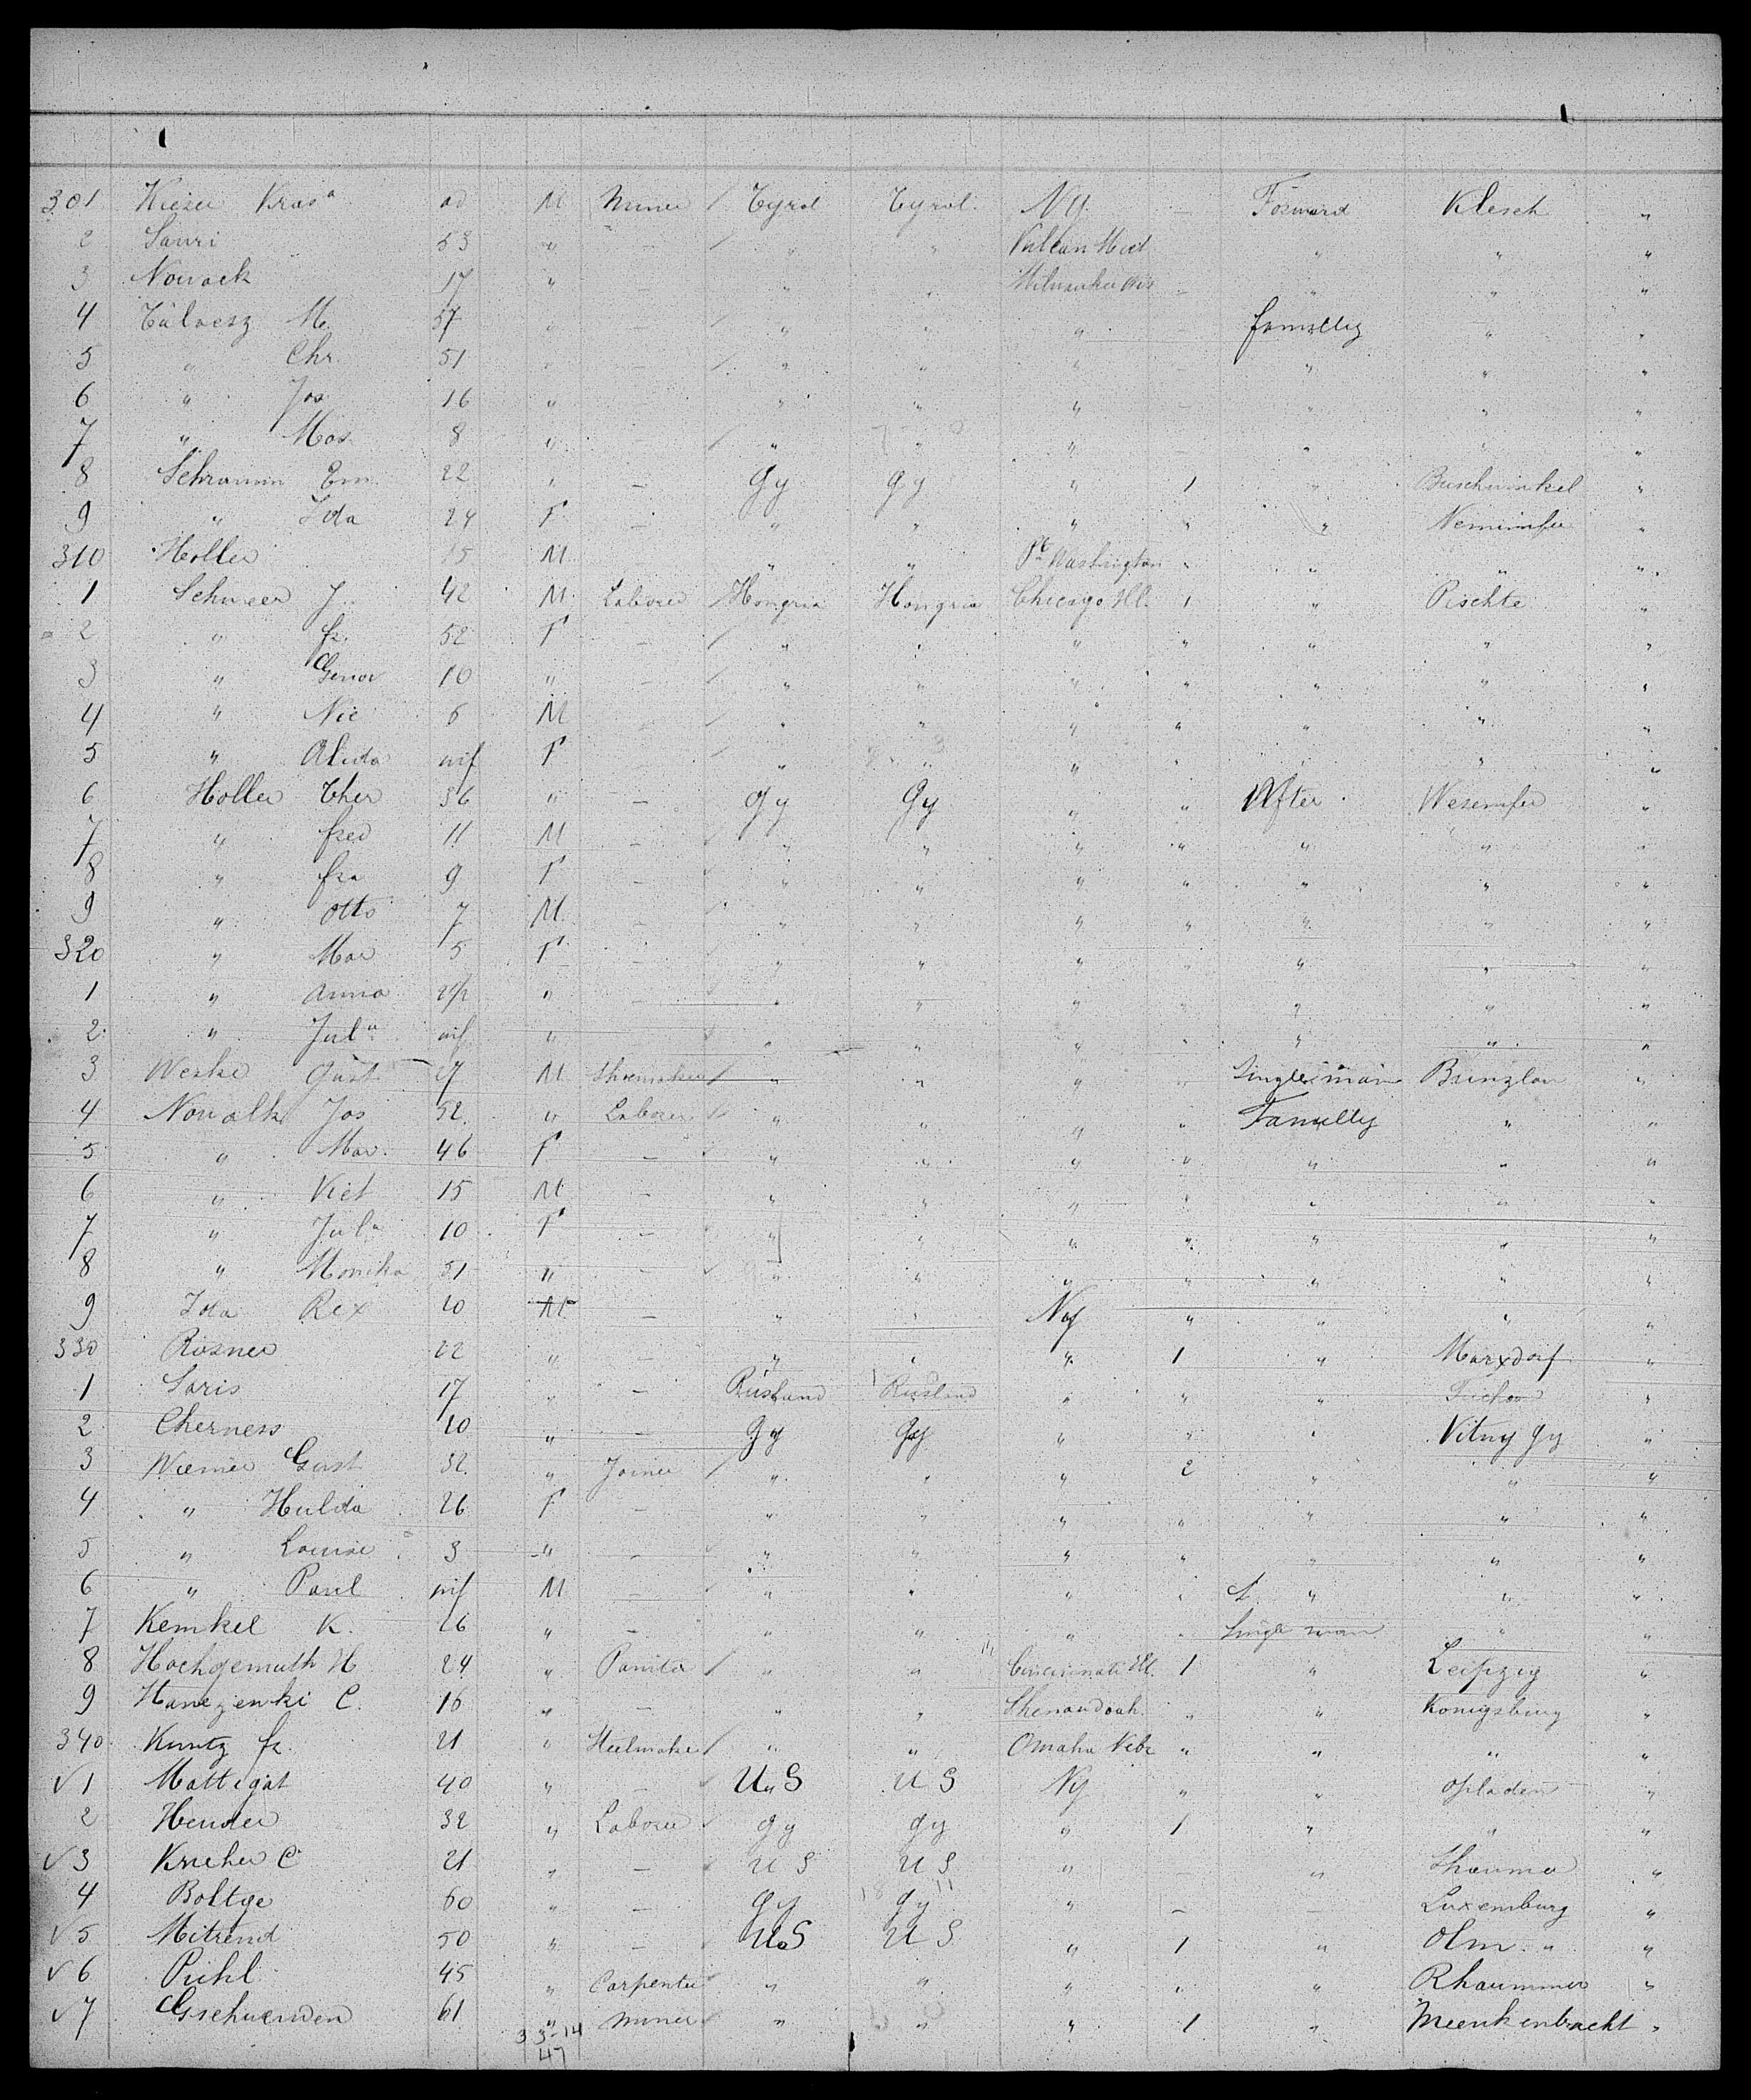 301 Kieser Kras a ad M Miner / Tyrol Tyrol NY. — Forward Klesch "
2 Sauri 53 " — / " " Vulcan Mich " " "
3 Nowack 17 " — " " Milwaukee Wis — " " "
4 M. 57 " — / " " " — familly " "
5 " Chr. 51 " — / " " " " " "
6 " Jos 16 " — " " " — " " "
7 " Mos 8 " — / " " " — " " "
8 Schramm Em. 22 " — Gy Gy " 1 " Buschwinkel "
9 " Ida 24 F — " " " " " "
310 Holler 15 M " " Pt Washington " " " "
1 Schneer J. 42 M Laborer / Hongria Hongria Chicago Ill. 1 " Pischte "
2 " fr. 52 F — / " " " " " " "
3 " Genov 10 " — / " " " " " " "
4 " Nic 6 M / " " " " " " "
5 " Alida inf F / " " " " " " "
6 Holler Ther 36 " — Gy Gy " " After "
7 " fred 11 M — / " " " " " " "
8 " fra 9 F — / " " " " " " "
9 " Otto 7 M — / " " " " " " "
320 " Mar 5 F — / " " " " " " "
1 " Anna " — / " " " " " " "
2 " Jul a inf " / " " " " " " "
3 Werke Gust M Shoemaker / " " " " Single man Bunzlau "
4 Nowalk Jos 52. " Laborer / " " " " Familly " "
5 " Mar. 46 F — / " " " " " " "
6 " Vict 15 M — " " " " " " "
7 " Jul a 10 F — " " " " " " "
8 " Monika 51 " — / " " " " " " "
9 Ida Rex 20 M — " " Ny " " " "
330 Rosner 22 " — " " " 1 " Marxdorf "
1 Saris 17 " — Rusland Rusland " " " "
2 Cherness 20 " — Gy Gy " " " Vitny Gy "
3 Wiemer Gust 32. " Joiner / " " " 2 " " "
4 " Hulda 26 F — " " " " " " "
5 " Louise 3 " — / " " " " " " "
6 " Paul inf M — / " " " " " " "
7 Kemkel K. 26 " — " " " " Single man " "
8 Hochgemuth H 24 " / " " Cincinnati Ill. 1 " Leipzig "
9 Hanezenki C. 16 " — " " Shenandoah. " " Konigsburg "
340 Kuntz fr. 21 " / " " Omaha Nebr " " " "
√ 1 Mattigat 40 " — / U " S U S Ny " " Opladen "
2 Hender 32 " Laborer / gy gy " 1 " " "
√ 3 Krucher C 21 " — / U S U S " " "
4 Boltge 60 " — gy gy " — — Luxemburg "
√ 5 Mitrend 50 " — U S U S " 1 " Olm " "
√ 6 Piehl 45 " Carpenter / " " " " " Rhaummer "
√ 7 Gschwenden 61 " Miner / " " " 1 " Meenkenbracht "
33-14
47